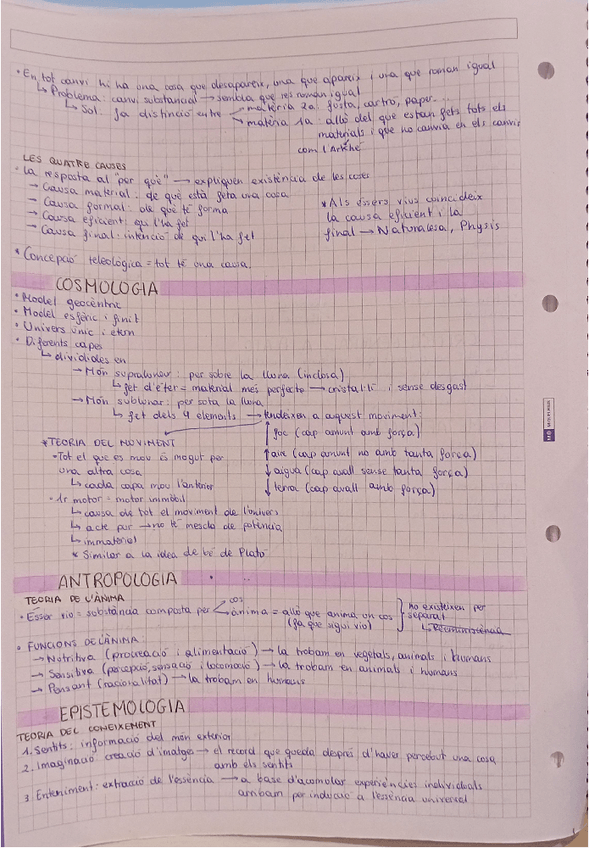 • En tot canvi hi ha una cosa que desapareix, una que apareix i una que roman igual
↳ Problema: canvi substancial → sembla que res roman igual
↳ Sol. fa distinció entre matèria 2a: fusta, cartró, paper...
matèria 1a: allò del que estan fets tots els
materials i que no canvia en els canvis
com l'Arkhé
LES QUATRE CAUSES
• la resposta al "per què" → expliquen existència de les coses
→ Causa material: de què està feta una cosa
→ Causa formal: de què té forma
→ Causa eficient: qui l'ha fet
→ Causa final: intenció de qui l'ha fet
* Als éssers vius coincideix
la causa eficient i la
final → Naturalesa, Physis
* Concepció teleològica = tot té una causa.
COSMOLOGIA
• Model geocèntric
• Model esfèric i finit
• Univers únic i etern
• Diferents capes
↳ dividides en
→ Món supralunar: per sobre la lluna (inclosa)
↳ fet d'èter = material més perfecte → cristal·lí i sense desgast
→ Món sublunar: per sota la lluna
↳ fet dels 4 elements → tendeixen a aquest moviment:
↑ foc (cap amunt amb força)
↑ aire (cap amunt no amb tanta força)
↓ aigua (cap avall sense tanta força)
↓ terra (cap avall amb força)
* TEORIA DEL MOVIMENT
• Tot el que es mou és mogut per
una altra cosa
↳ cada capa mou l'anterior
• 1r motor = motor immòbil
↳ causa de tot el moviment de l'univers
↳ acte pur → no té mescla de potència
↳ immaterial
* Similar a la idea de bé de Plató
ANTROPOLOGIA
TEORIA DE L'ÀNIMA
• Ésser viu = substància composta per cos
ànima = allò que anima un cos
(fa que sigui viu)
no existeixen per
separat
↳ Reminiscència
• FUNCIONS DE L'ÀNIMA:
→ Nutritiva (procreació i alimentació) → la trobam en vegetals, animals i humans
→ Sensitiva (percepció, sensació i locomoció) → la trobam en animals i humans
→ Pensant (racionalitat) → la trobam en humans
EPISTEMOLOGIA
TEORIA DEL CONEIXEMENT
1. Sentits: informació del món exterior
2. Imaginació: creació d'imatge → el record que queda després d'haver percebut una cosa
amb els sentits
3. Enteniment: extracció de l'essència → a base d'acomular experiències individuals
arribam per inducció a l'essència universal